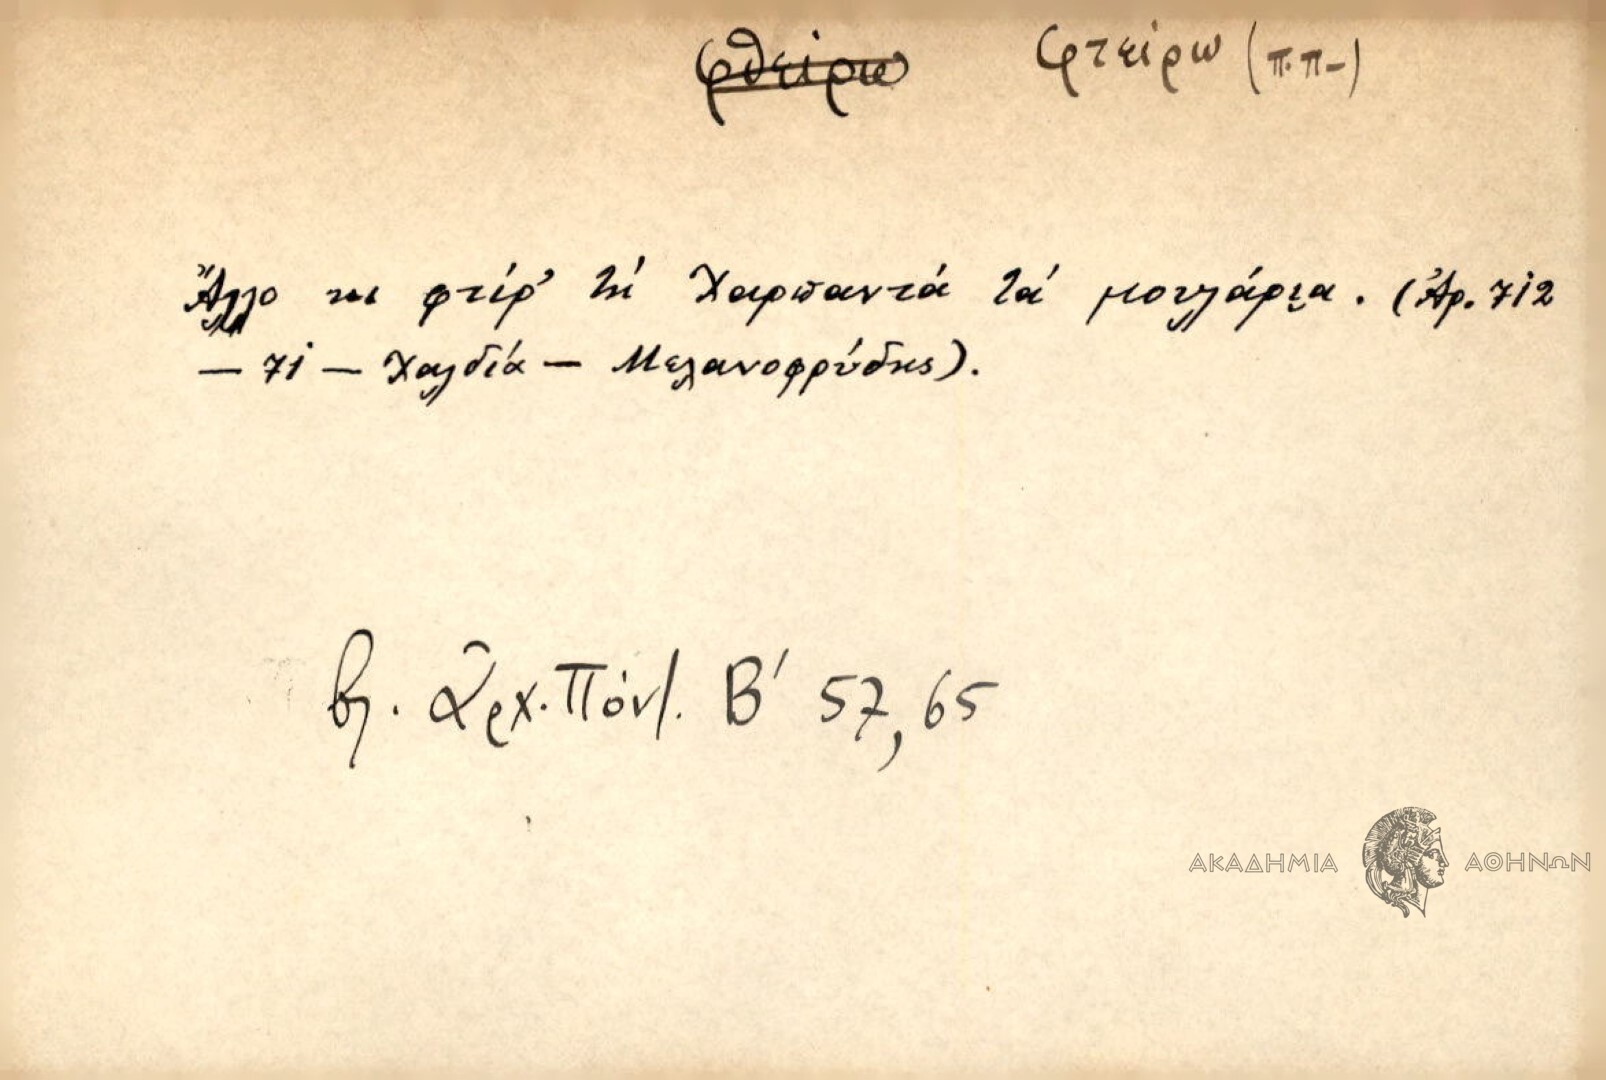 φθείρω φτείρω (π.π-)
Ἄλλο κι φτείρ' τή Χαρπαντά τά μουλάρι͜α. (Ἀρ. 712
— 71 — Χαλδία — Μελανοφρύδης).
βλ. Ἀρχ. Πόντ. Β' 57, 65
ΑΚΑΔΗΜΙΑ ΑΘΗΝΩΝ